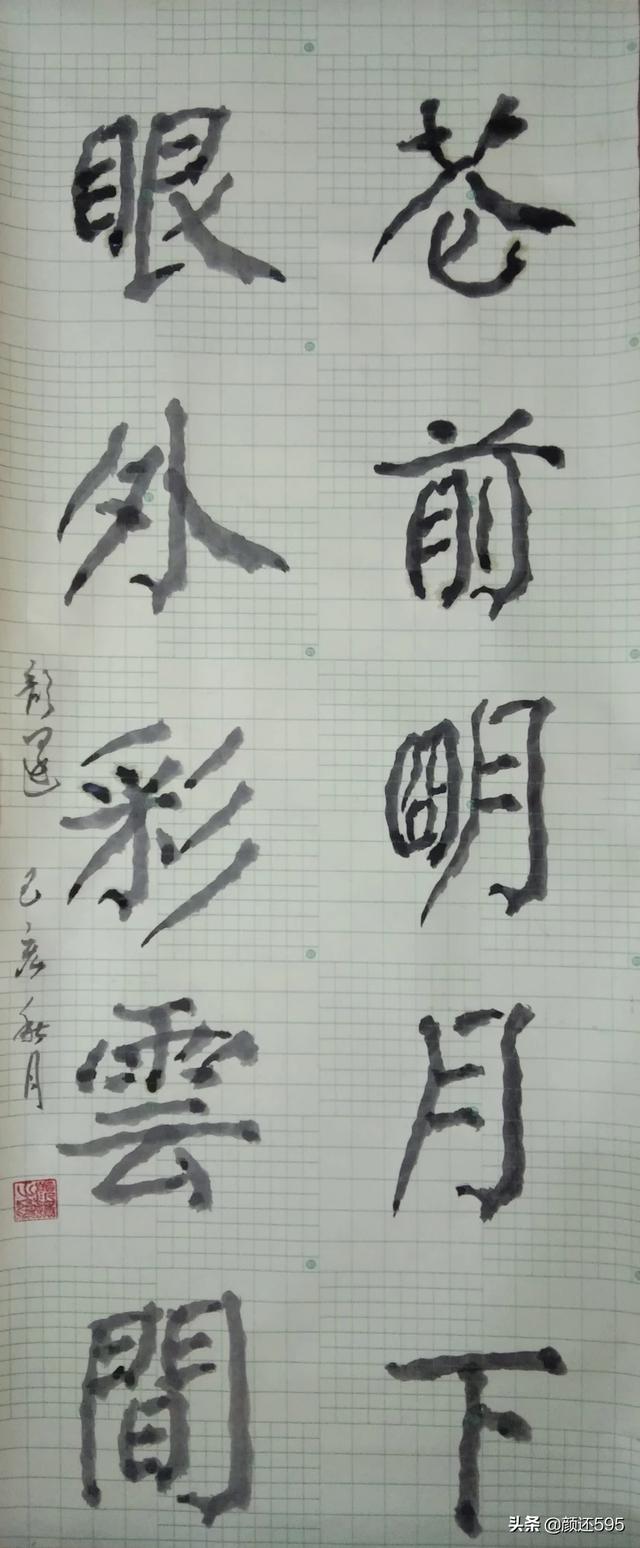 芲前明月下
眼外彩雲間
顏還 己亥秋月
头条 @颜还595